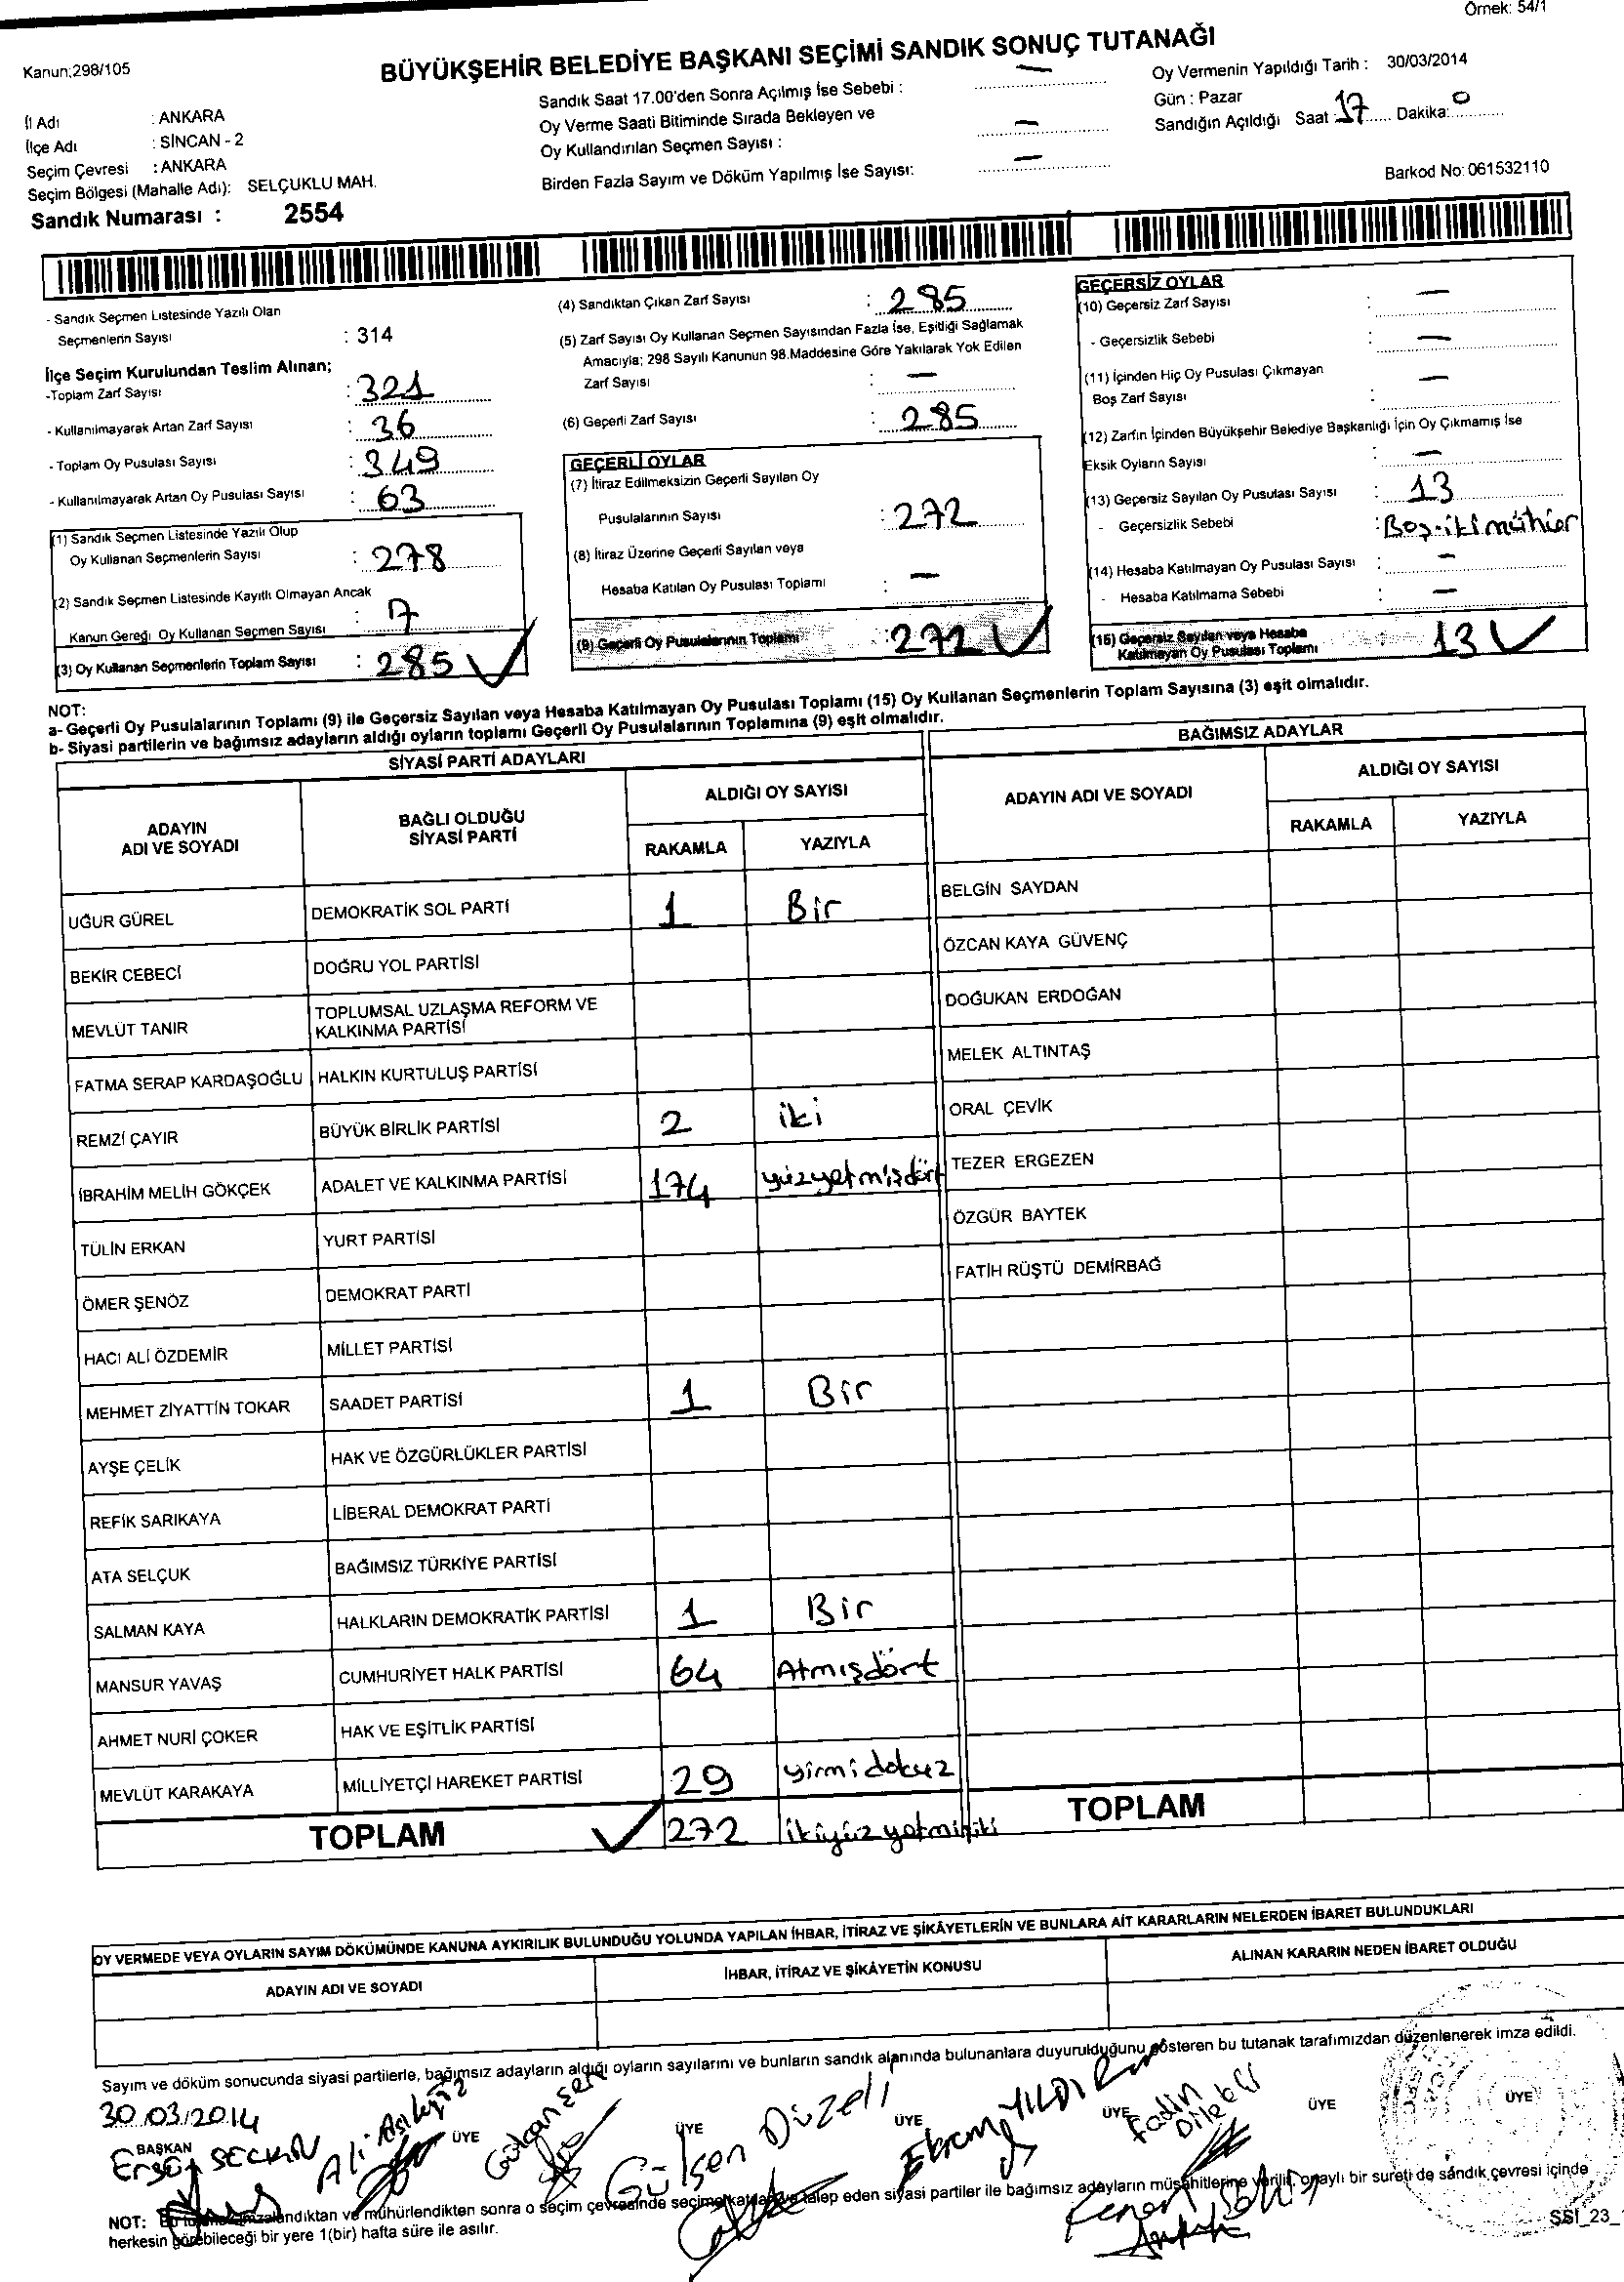 Örnek: 54/1
Kanun;298/105
BÜYÜKŞEHİR BELEDİYE BAŞKANI SEÇİMİ SANDIK SONUÇ TUTANAĞI
İl Adı : ANKARA
İlçe Adı : SİNCAN - 2
Seçim Çevresi : ANKARA
Seçim Bölgesi (Mahalle Adı): SELÇUKLU MAH.
Sandık Numarası : 2554
Sandık Saat 17.00'den Sonra Açılmış İse Sebebi : —
Oy Verme Saati Bitiminde Sırada Bekleyen ve
Oy Kullandırılan Seçmen Sayısı : —
Birden Fazla Sayım ve Döküm Yapılmış İse Sayısı: —
Oy Vermenin Yapıldığı Tarih : 30/03/2014
Gün : Pazar
Sandığın Açıldığı Saat : 17 Dakika: 0
Barkod No: 061532110
- Sandık Seçmen Listesinde Yazılı Olan
Seçmenlerin Sayısı : 314
İlçe Seçim Kurulundan Teslim Alınan;
-Toplam Zarf Sayısı : 321
- Kullanılmayarak Artan Zarf Sayısı : 36
- Toplam Oy Pusulası Sayısı : 349
- Kullanılmayarak Artan Oy Pusulası Sayısı : 63
(1) Sandık Seçmen Listesinde Yazılı Olup
Oy Kullanan Seçmenlerin Sayısı : 278
(2) Sandık Seçmen Listesinde Kayıtlı Olmayan Ancak
Kanun Gereği Oy Kullanan Seçmen Sayısı : 7
(3) Oy Kullanan Seçmenlerin Toplam Sayısı : 285
(4) Sandıktan Çıkan Zarf Sayısı : 285
(5) Zarf Sayısı Oy Kullanan Seçmen Sayısından Fazla İse, Eşitliği Sağlamak
Amacıyla; 298 Sayılı Kanunun 98.Maddesine Göre Yakılarak Yok Edilen
Zarf Sayısı : —
(6) Geçerli Zarf Sayısı : 285
GEÇERLİ OYLAR
(7) İtiraz Edilmeksizin Geçerli Sayılan Oy
Pusulalarının Sayısı : 272
(8) İtiraz Üzerine Geçerli Sayılan veya
Hesaba Katılan Oy Pusulası Toplamı : —
(9) Geçerli Oy Pusulalarının Toplamı : 272
GEÇERSİZ OYLAR
(10) Geçersiz Zarf Sayısı : —
- Geçersizlik Sebebi : —
(11) İçinden Hiç Oy Pusulası Çıkmayan
Boş Zarf Sayısı : —
(12) Zarfın İçinden Büyükşehir Belediye Başkanlığı İçin Oy Çıkmamış İse
Eksik Oyların Sayısı : —
(13) Geçersiz Sayılan Oy Pusulası Sayısı : 13
- Geçersizlik Sebebi : Boş-iki mühür
(14) Hesaba Katılmayan Oy Pusulası Sayısı : —
- Hesaba Katılmama Sebebi : —
(15) Geçersiz Sayılan veya Hesaba
Katılmayan Oy Pusulası Toplamı 13
NOT:
a- Geçerli Oy Pusulalarının Toplamı (9) ile Geçersiz Sayılan veya Hesaba Katılmayan Oy Pusulası Toplamı (15) Oy Kullanan Seçmenlerin Toplam Sayısına (3) eşit olmalıdır.
b- Siyasi partilerin ve bağımsız adayların aldığı oyların toplamı Geçerli Oy Pusulalarının Toplamına (9) eşit olmalıdır.
SİYASİ PARTİ ADAYLARI
ADAYIN ADI VE SOYADI BAĞLI OLDUĞU SİYASİ PARTİ ALDIĞI OY SAYISI
RAKAMLA YAZIYLA
UĞUR GÜREL DEMOKRATİK SOL PARTİ 1 Bir
BEKİR CEBECİ DOĞRU YOL PARTİSİ
MEVLÜT TANIR TOPLUMSAL UZLAŞMA REFORM VE KALKINMA PARTİSİ
FATMA SERAP KARDAŞOĞLU HALKIN KURTULUŞ PARTİSİ
REMZİ ÇAYIR BÜYÜK BİRLİK PARTİSİ 2 iki
İBRAHİM MELİH GÖKÇEK ADALET VE KALKINMA PARTİSİ 174 yüzyetmişdört
TÜLİN ERKAN YURT PARTİSİ
ÖMER ŞENÖZ DEMOKRAT PARTİ
HACI ALİ ÖZDEMİR MİLLET PARTİSİ
MEHMET ZİYATTİN TOKAR SAADET PARTİSİ 1 Bir
AYŞE ÇELİK HAK VE ÖZGÜRLÜKLER PARTİSİ
REFİK SARIKAYA LİBERAL DEMOKRAT PARTİ
ATA SELÇUK BAĞIMSIZ TÜRKİYE PARTİSİ
SALMAN KAYA HALKLARIN DEMOKRATİK PARTİSİ 1 Bir
MANSUR YAVAŞ CUMHURİYET HALK PARTİSİ 64 Atmışdört
AHMET NURİ ÇOKER HAK VE EŞİTLİK PARTİSİ
MEVLÜT KARAKAYA MİLLİYETÇİ HAREKET PARTİSİ 29 yirmidokuz
TOPLAM 272 ikiyüzyetmişiki
BAĞIMSIZ ADAYLAR
ADAYIN ADI VE SOYADI ALDIĞI OY SAYISI
RAKAMLA YAZIYLA
BELGİN SAYDAN
ÖZCAN KAYA GÜVENÇ
DOĞUKAN ERDOĞAN
MELEK ALTINTAŞ
ORAL ÇEVİK
TEZER ERGEZEN
ÖZGÜR BAYTEK
FATİH RÜŞTÜ DEMİRBAĞ
TOPLAM
OY VERMEDE VEYA OYLARIN SAYIM DÖKÜMÜNDE KANUNA AYKIRILIK BULUNDUĞU YOLUNDA YAPILAN İHBAR, İTİRAZ VE ŞİKÂYETLERİN VE BUNLARA AİT KARARLARIN NELERDEN İBARET BULUNDUKLARI
ADAYIN ADI VE SOYADI İHBAR, İTİRAZ VE ŞİKÂYETİN KONUSU ALINAN KARARIN NEDEN İBARET OLDUĞU
Sayım ve döküm sonucunda siyasi partilerle, bağımsız adayların aldığı oyların sayılarını ve bunların sandık alanında bulunanlara duyurulduğunu gösteren bu tutanak tarafımızdan düzenlenerek imza edildi.
30.03.2014
BAŞKAN ÜYE ÜYE ÜYE ÜYE ÜYE ÜYE
Gülşen Düzeli
Ekrem YILDIRIM
NOT: Bu tutanak imzalandıktan ve mühürlendikten sonra o seçim çevresinde seçime katılan ve talep eden siyasi partiler ile bağımsız adayların müşahitlerine verilir, onaylı bir sureti de sandık çevresi içinde
herkesin görebileceği bir yere 1(bir) hafta süre ile asılır.
SSI_23_